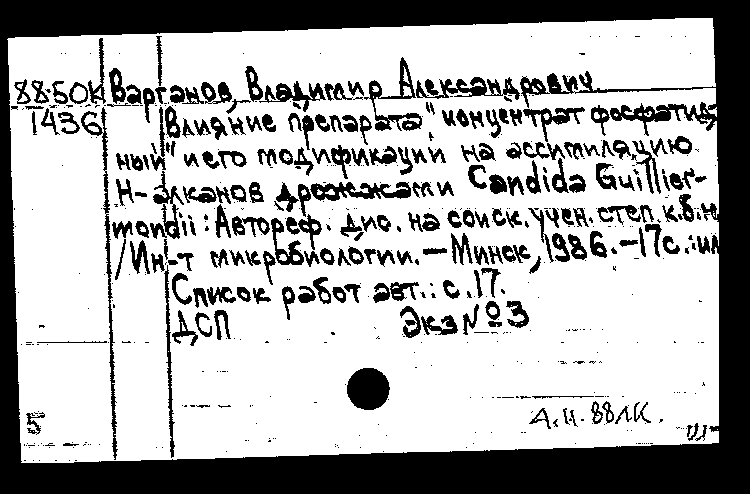 88-5OK Варганов, Владимир Александрович.
1436 Влияние препарата „концентрат фосфатид
ный" и его модификаций на ассимиляцию
Н-алканов дрожжами Candida Guillier-
mondii: Автореф. дис. на соиск. учен. степ. к.б.н
/Ин-т микробиологии.—Минск, 1986.—17с.:ил
Список работ авт.: с.17.
ДСП Экз №3
5